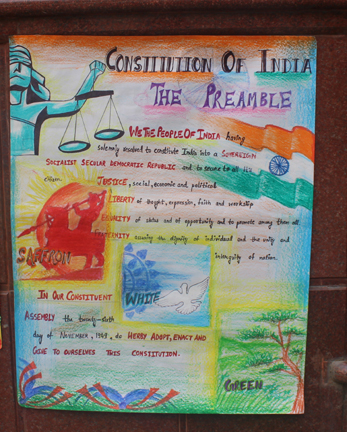 CONSTITUTION OF INDIA
THE PREAMBLE
WE THE PEOPLE OF INDIA having
solemnly resolved to constitute India into a SOVEREIGN
SOCIALIST SECULAR DEMOCRATIC REPUBLIC and to secure to all its
citizen.
JUSTICE, social, economic and political
LIBERTY of thought, expression, faith and worship
EQUALITY of status and of opportunity and to promote among them all
FRATERNITY assuring the dignity of individual and the unity and
integrity of nation.
SAFFRON
IN OUR CONSTITUENT
WHITE
ASSEMBLY the twenty-sixth
day of NOVEMBER, 1949, do HERBY ADOPT, ENACT AND
GIVE TO OURSELVES THIS CONSTITUTION.
GREEN